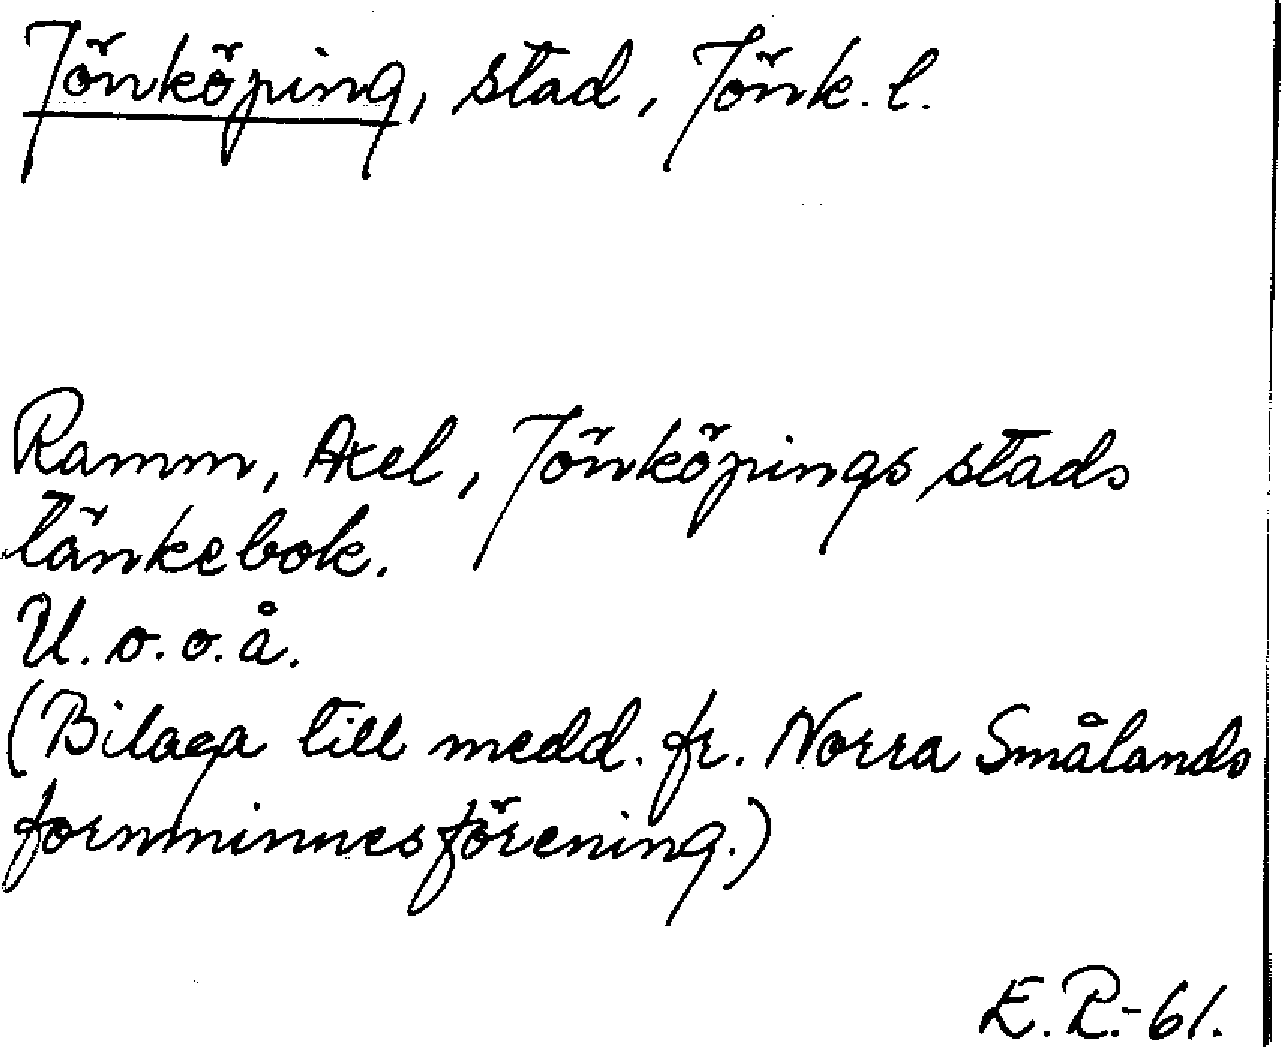 Jönköping, stad, Jönk. l.
Ramm, Axel, Jönköpings stads
tänkebok.
U. o. o. å.
(Bilaga till medd. fr. Norra Smålands
fornminnesförening.)
E. R.-61.